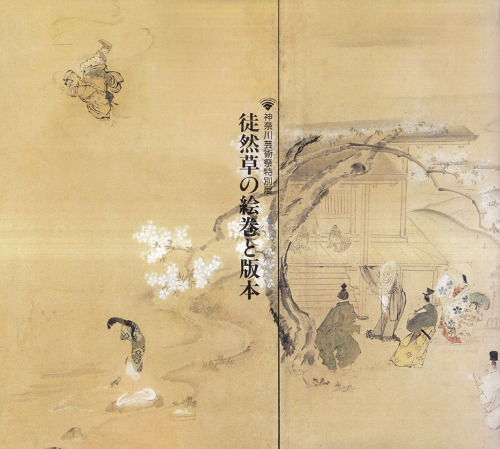 神奈川芸術祭特別展
徒然草の絵巻と版本